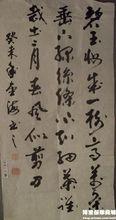 碧玉妝成一樹高萬條
垂下綠絲絛不知細葉誰
裁出二月春風似剪刀
癸未年